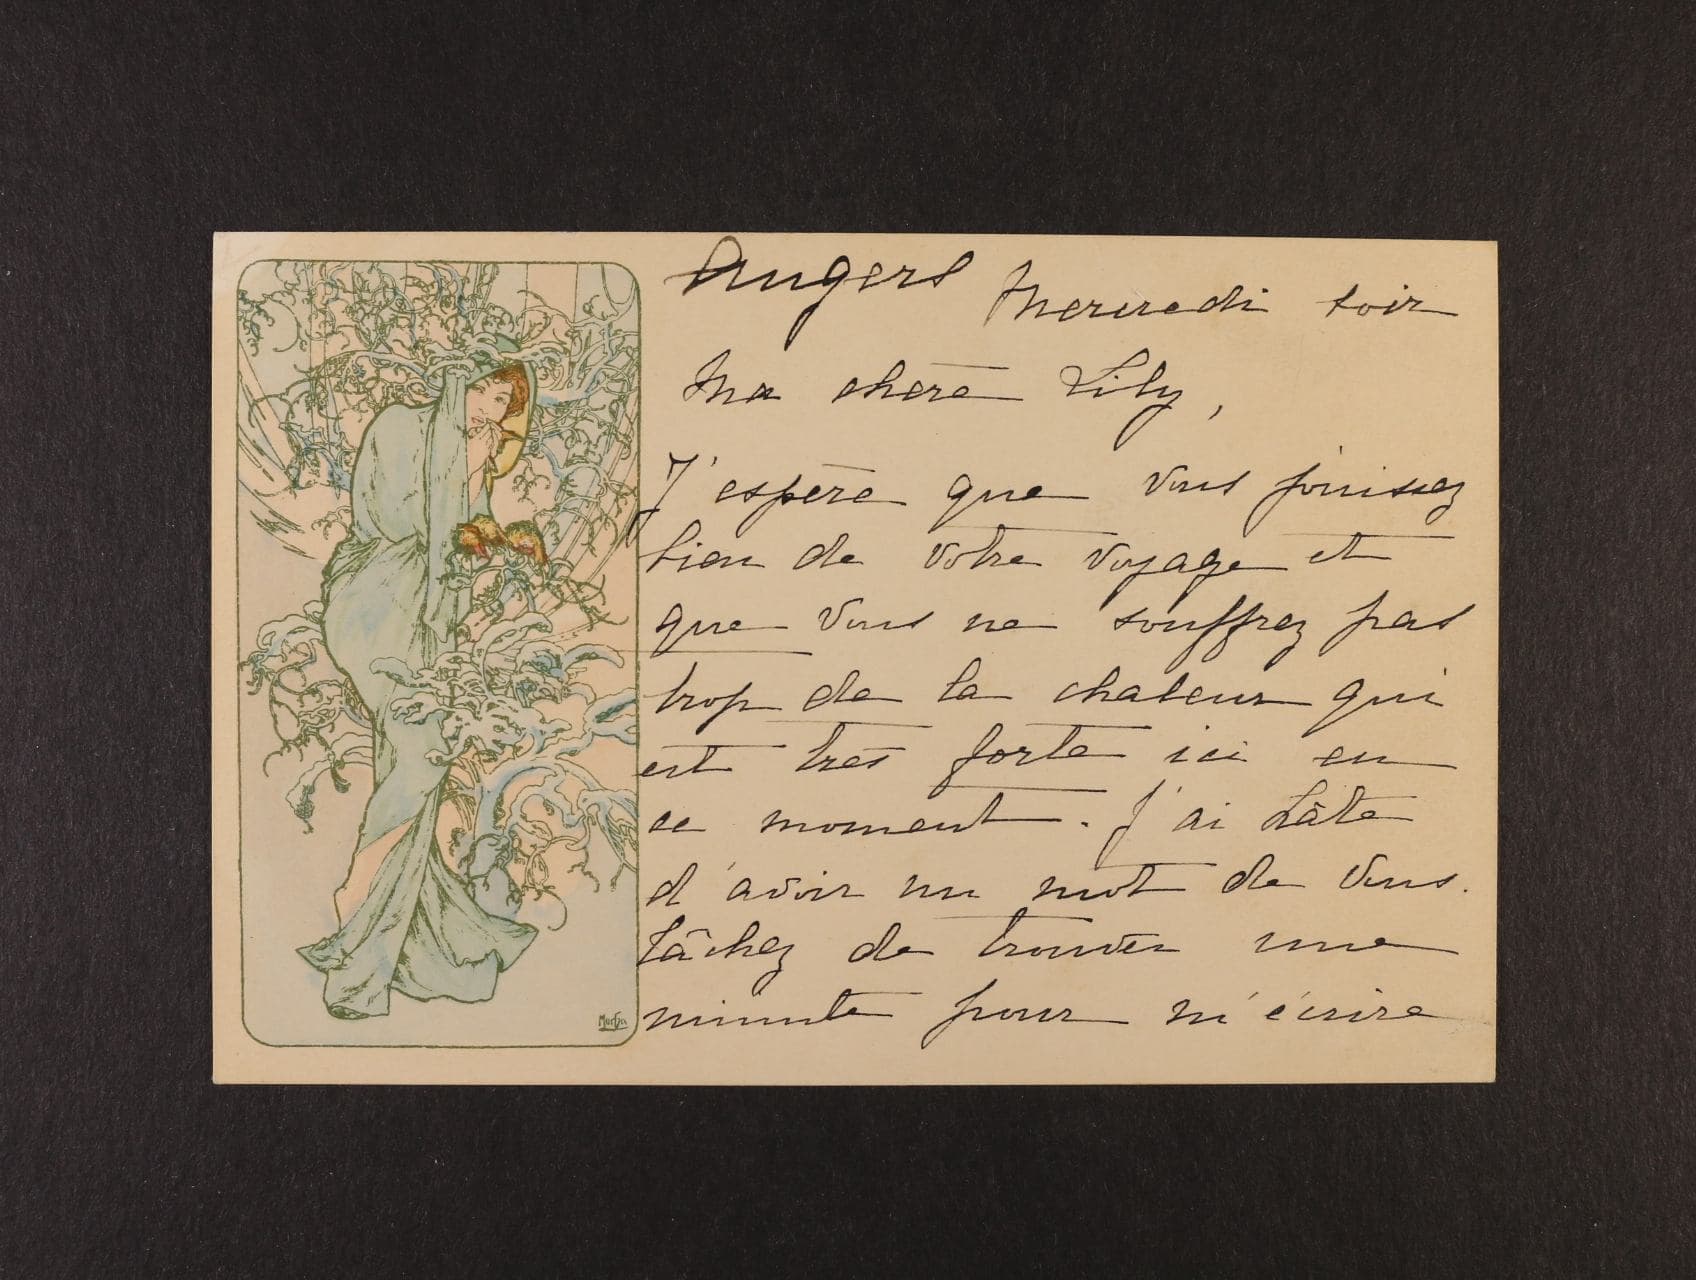 Angers Mercredi soir
Ma chère Lily,
J'espère que vous jouissez
bien de votre voyage et
que vous ne souffrez pas
trop de la chaleur qui
est très forte ici en
ce moment. J'ai hâte
d'avoir un mot de vous.
tâchez de trouver une
minute pour m'écrire
Mucha